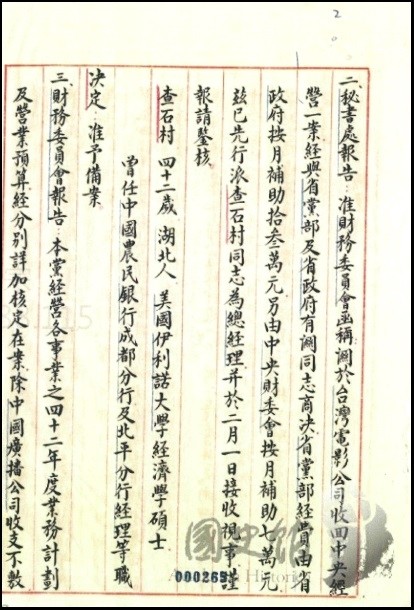 2
二、秘書處報告：准財務委員會函稱：關於台灣電影公司收回中央經
營一案經與省黨部及省政府有關同志商決省黨部經費由省
政府按月補助拾叁萬元另由中央財委會按月補助七萬元
茲已先行派查石村同志為總經理并於二月一日接收視事謹
報請鑒核
查石村 四十二歲 湖北人 美國伊利諾大學經濟學碩士
曾任中國農民銀行成都分行及北平分行經理等職
決定：准予備案
三、財務委員會報告：本黨經營各事業之四十二年度業務計劃
及營業預算經分別詳加核定在案除中國廣播公司收支不敷
000269
國史館